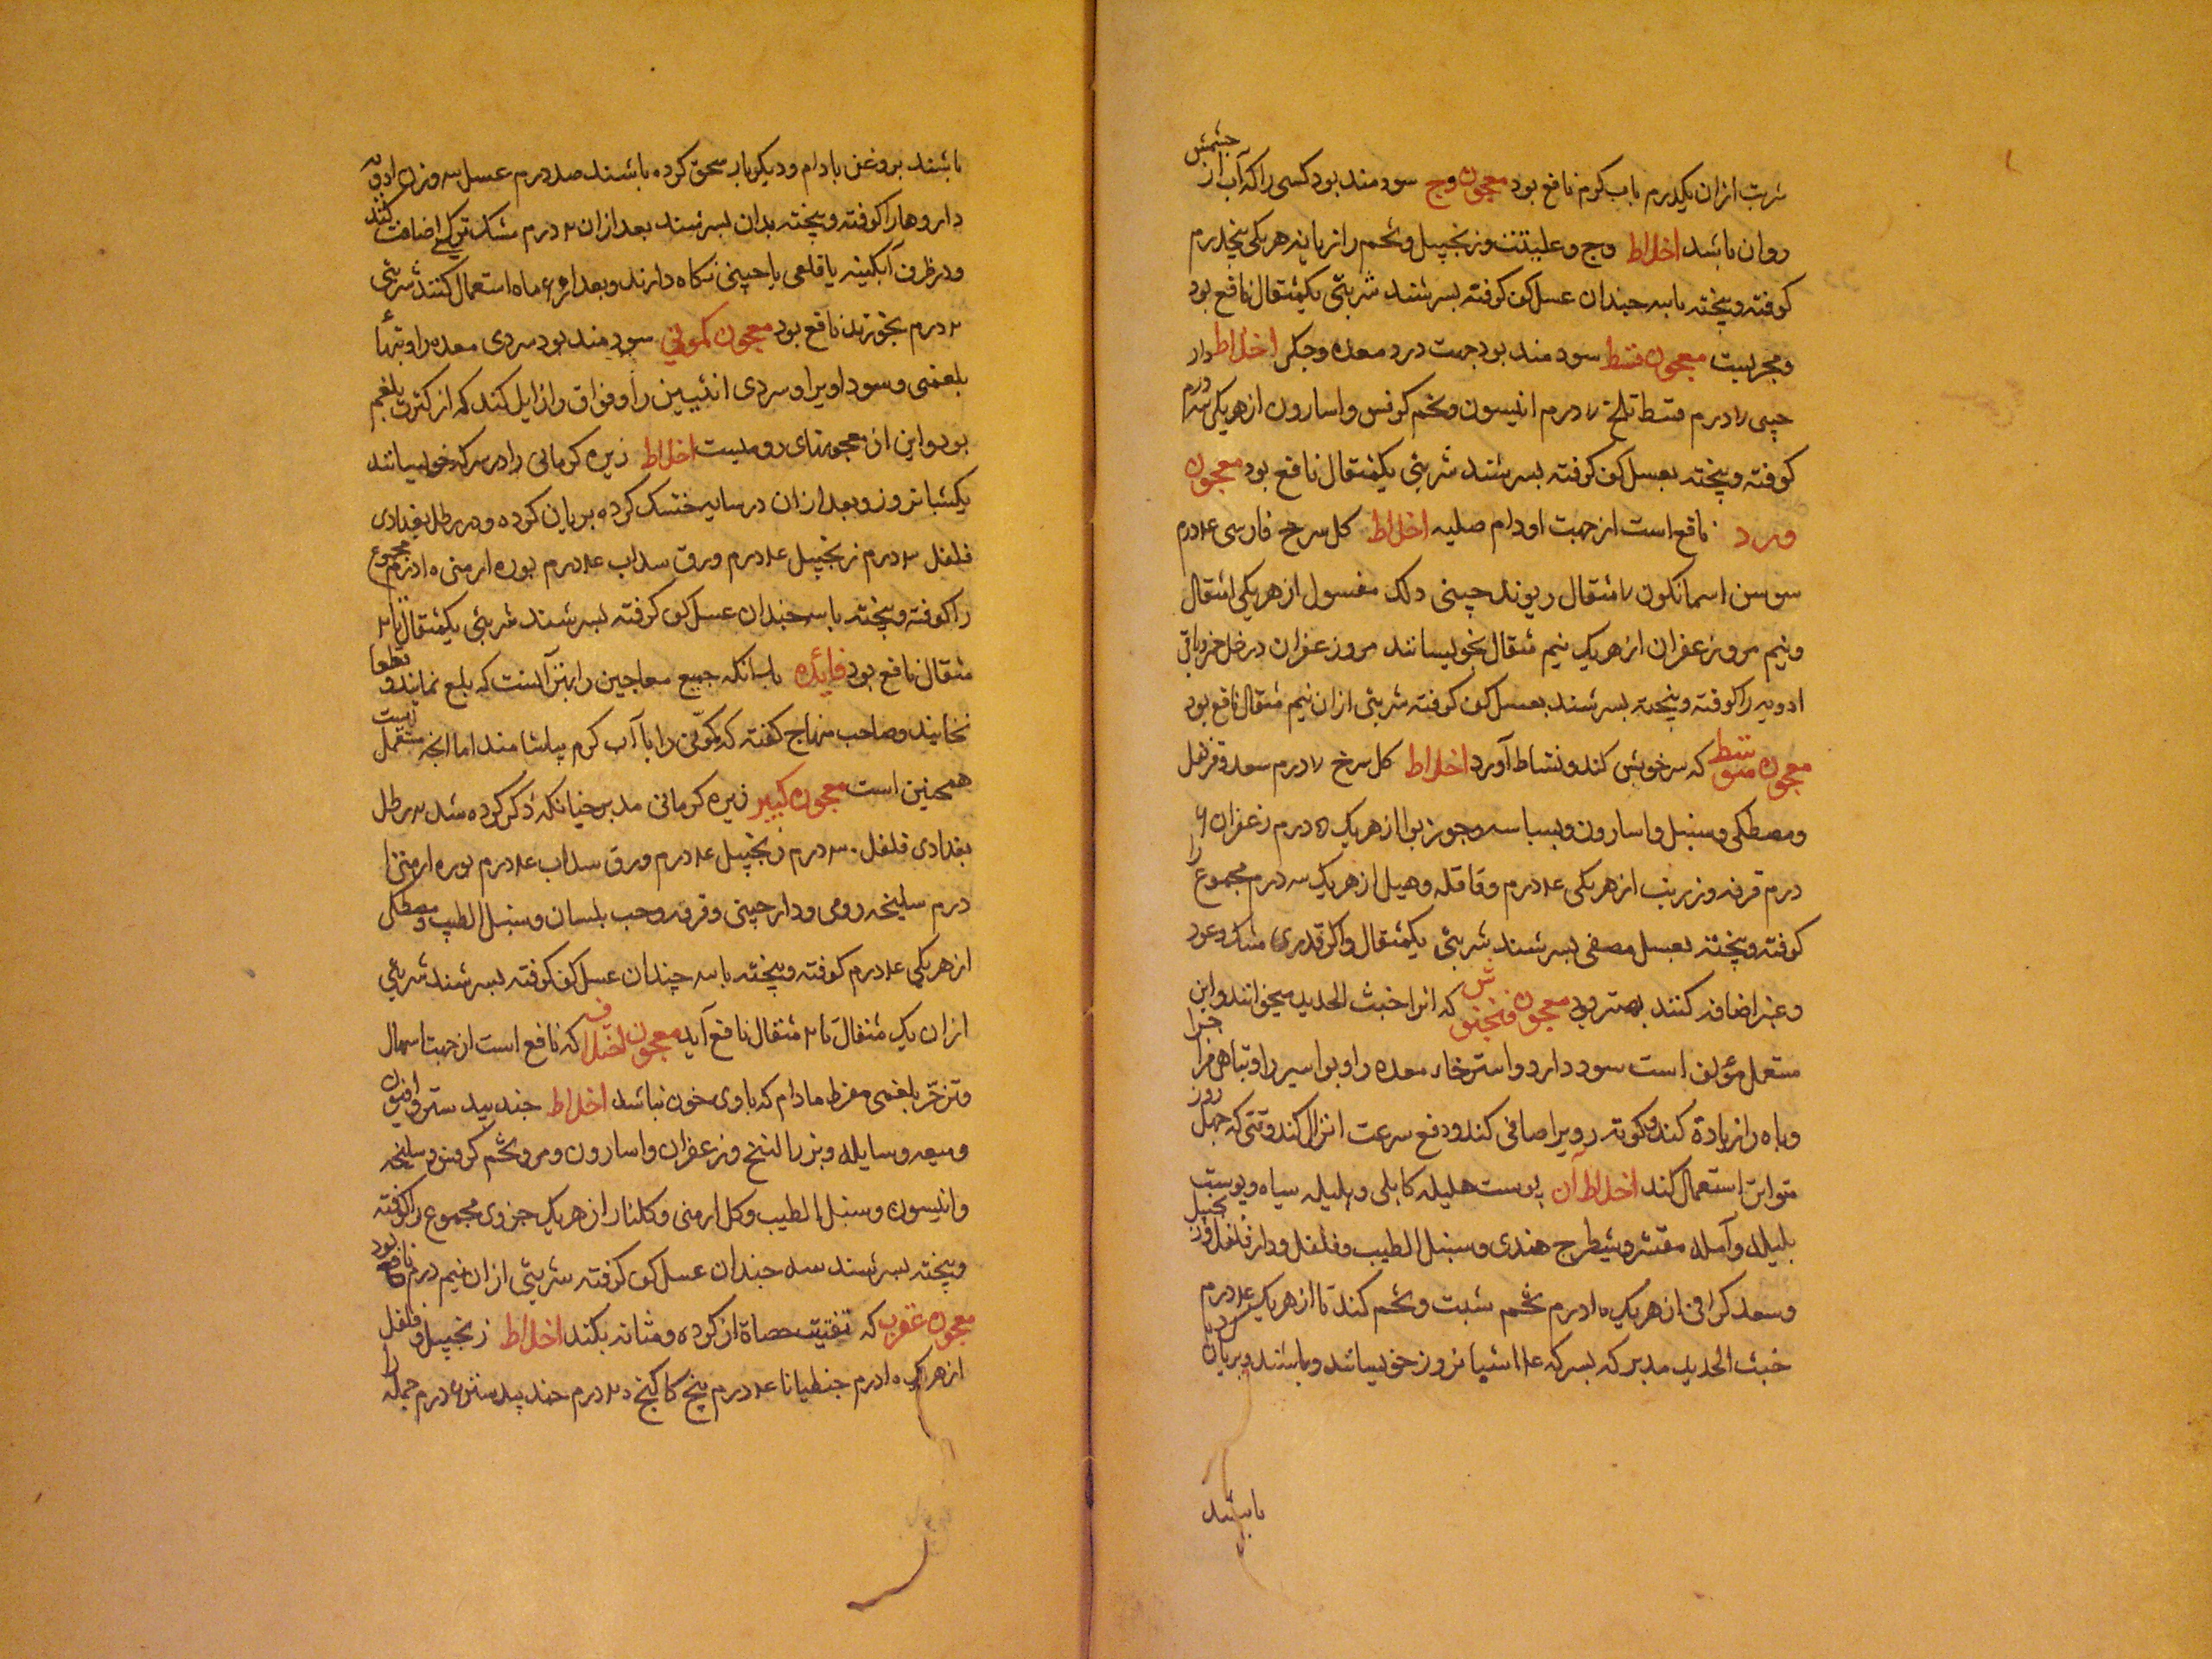 شربت ازان یکدرم باب کرم نافع بود معجون وج سودمند بود کسی را که آب از چشمش
روان باشد اخلاط وج و حلتیت و زنجبیل و تخم رازیانه هریکی پنجدرم
کوفته و پخته با سه چندان عسل کف کرفته بسرشند شربتی یکمثقال نافع بود
و مجربست معجون قسط سودمند بود جهت درد معده و جکر اخلاط دار
چینی ۷ درم قسط تلخ ۷ درم انیسون و تخم کرفس و اسارون از هریکی سه درم
کوفته و پخته بعسل کف کرفته بسرشند شربتی یکمثقال نافع بود معجون
ورد نافع است از جهت اورام صلبه اخلاط کل سرخ فارسی ۴ درم
سوسن اسمانکون ۲ مثقال ریوند چینی و لک مغسول از هریکی مثقال
و نیم مر و زعفران از هریک نیم مثقال بخویسانند مر و زعفران در خل خمر و باقی
ادویه را کوفته و پخته بسرشند بعسل کف کرفته شربتی ازان نیم مثقال نافع بود
معجون منشط که سرخوش کند و نشاط آورد اخلاط کل سرخ ۷ درم سعد و قرنفل
و مصطکی و سنبل و اسارون و بسباسه و جوزبوا از هریک ۵ درم زعفران ۶
درم قرفه و زرنب از هریکی ۴ درم و قاقله و هیل از هریک سه درم مجموع را
کوفته و پخته بعسل مصفی بسرشند شربتی یکمثقال و اکر قدری مشک و عود
و عنبر اضافه کنند بهتر بود معجون فنجنوش که انرا خبث الحدید میخوانند و این
مستعمل مؤلف است سود دارد و استرخاء معده را و بواسیر را و تباهی مزاج را
و باه را زیادة کند و کونه روی را صافی کند و دفع سرعت انزال کند وقتی که چهل روز
متواتر استعمال کند اخلاط آن پوست هلیله کابلی و هلیله سیاه و پوست
بلیله و آمله مقشر و شیطرج هندی و سنبل الطیب و فلفل و دارفلفل و زنجبیل
و سعد کرافی از هریک ۱۰ درم تخم شبت و تخم کندنا از هریک ۴ درم
خبث الحدید مدبر که بسرکه ۱۴ شبانروز خویساند و باشند و بریان کرده
باشند
باشند بروغن بادام و دیکر باب سحق کرده باشند صد درم عسل سه وزن ادویه
داروها را کوفته و پخته بدان بسرشند بعد ازان ۲ درم مشک ترکی اضافت کنند
و در ظرف آبکینه یا قلعی یا چینی نکاه دارند و بعد از ۶ ماه استعمال کنند شربتی
۲ درم بخورند نافع بود معجون کمونی سودمند بود سردی معده را و تبها
بلغمی و سوداوی را و سردی انثیین را و فواق را زایل کند که از کثرت بلغم
بود و این از معجونهای رومیست اخلاط زیره کرمانی را در سرکه خویسانند
یکشبانروز و بعد ازان در سایه خشک کرده بریان کرده و در رطل بغدادی
فلفل ۳ درم زنجبیل ۴ درم ورق سداب ۴ درم بوره ارمنی ۱۰ درم مجموع
را کوفته و پخته با سه چندان عسل کف کرفته بسرشند شربتی یکمثقال تا ۲
مثقال نافع بود فایده بدانکه جمیع معاجین را بهتر آنست که بلع نمایند و قطعا
نخایند و صاحب منهاج کفته که کمونی را با آب کرم بیاشامند اما انچه مستعمل است
همچنین است معجون کبیر زیره کرمانی مدبر چنانکه ذکر کرده شد سه رطل
بغدادی فلفل ۳۰ درم زنجبیل ۴ درم ورق سداب ۴ درم بوره ارمنی ۱۰
درم سلیخه رومی و دارچینی و قرفه و حب بلسان و سنبل الطیب و مصطکی
از هریکی ۴ درم کوفته و پخته با سه چندان عسل کف کرفته بسرشند شربتی
ازان یک مثقال تا ۲ مثقال نافع آید معجون اختلاف که نافع است از جهت اسهال
و تزحّر بلغمی مفرط مادام که باوی خون نباشد اخلاط جندبیدستر و افیون
و میعه و سایله و بزر البنج و زعفران و اسارون و مر و تخم کرفس و سلیخه
و انیسون و سنبل الطیب و کل ارمنی و کلنار از هریک جزوی مجموع را کوفته
و پخته بسرشند سه چندان عسل کف کرفته شربتی ازان نیم درم نافع بود
معجون عقرب که تفتیت حصاة از کرده و مثانه بکند اخلاط زنجبیل و فلفل
از هریک ۱۰ درم جنطیانا ۴ درم بیخ کاکنج ۲ درم جندبیدستر ۴ درم جمله را